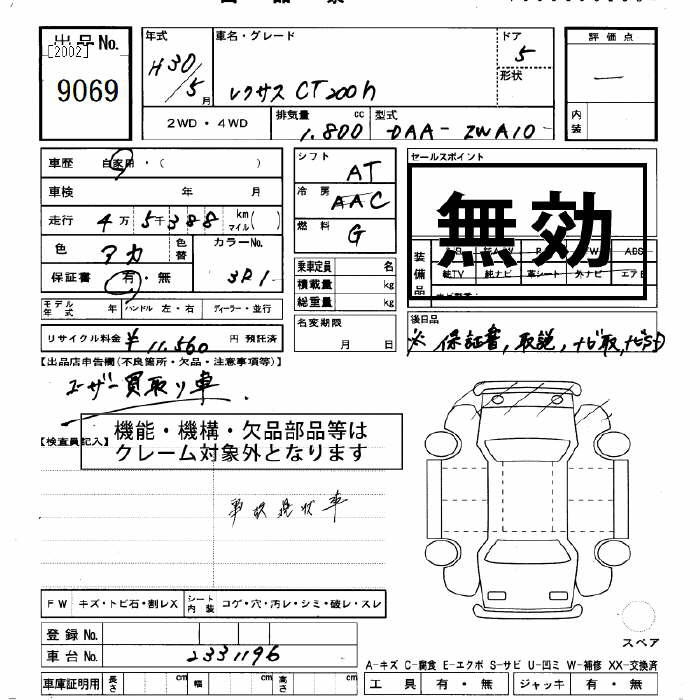 出品No.
[2002]
9069
年式
H30/5月
車名・グレード
レクサス CT200h
ドア
5
形状
評価点
—
内装
2WD・4WD
排気量 cc
1.800
型式
DAA-ZWA10-
車歴 自家用・( )
車検 年 月
走行 4万5千388 km マイル( )
色 アカ
色替
カラーNo.
3R1
保証書 有・無
シフト
AT
冷房
AAC
燃料
G
乗車定員 名
積載量 kg
総重量 kg
セールスポイント
無効
装備品
純TV 純ナビ 革シート 外ナビ エアB
モデル年式 年
ハンドル 左・右
ディーラー・並行
リサイクル料金 ¥11.560 円 預託済
名変期限
月 日
後日品
※保証書,取説,ナビ取,ナビSD
【出品店申告欄(不良箇所・欠品・注意事項等)】
ユーザー買取り車
【検査員記入】
機能・機構・欠品部品等は
クレーム対象外となります
事故現状車
FW キズ・トビ石・割レX
シート内装 コゲ・穴・汚レ・シミ・破レ・スレ
登録No.
車台No. 2331196
車庫証明用 長さ cm 幅 cm 高さ cm
スペア
A-キズ C-腐食 E-エクボ S-サビ U-凹ミ W-補修 XX-交換済
工具 有・無 ジャッキ 有・無